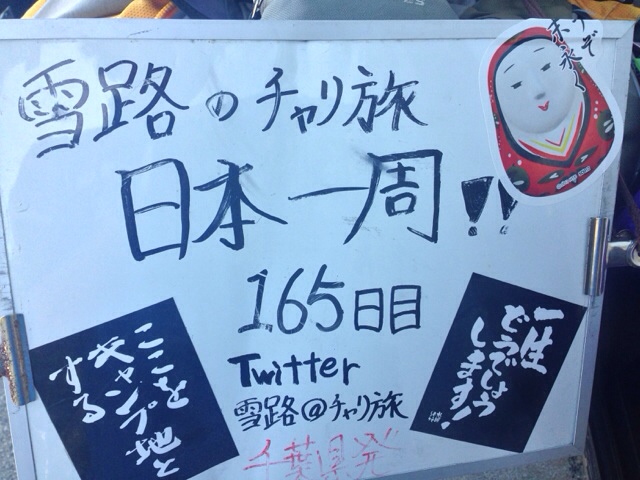 雪路のチャリ旅
日本一周!!
165日目
Twitter
雪路@チャリ旅
千葉県発
ここを
キャンプ地と
する
一生
どうでしょう
します!
末永く